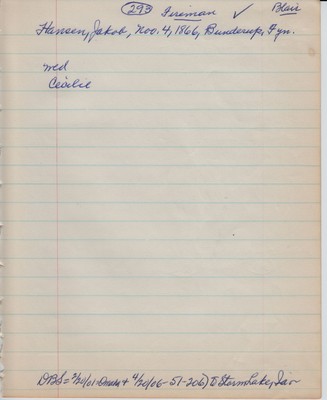 293 Fireman ✓ Blair
Hansen, Jakob, Nov. 4, 1866, Bunderup, Fyn.
wed
Cecilie
DBS = 2/20/01-Omaha + 4/20/06-51-206) to Storm Lake, Ia